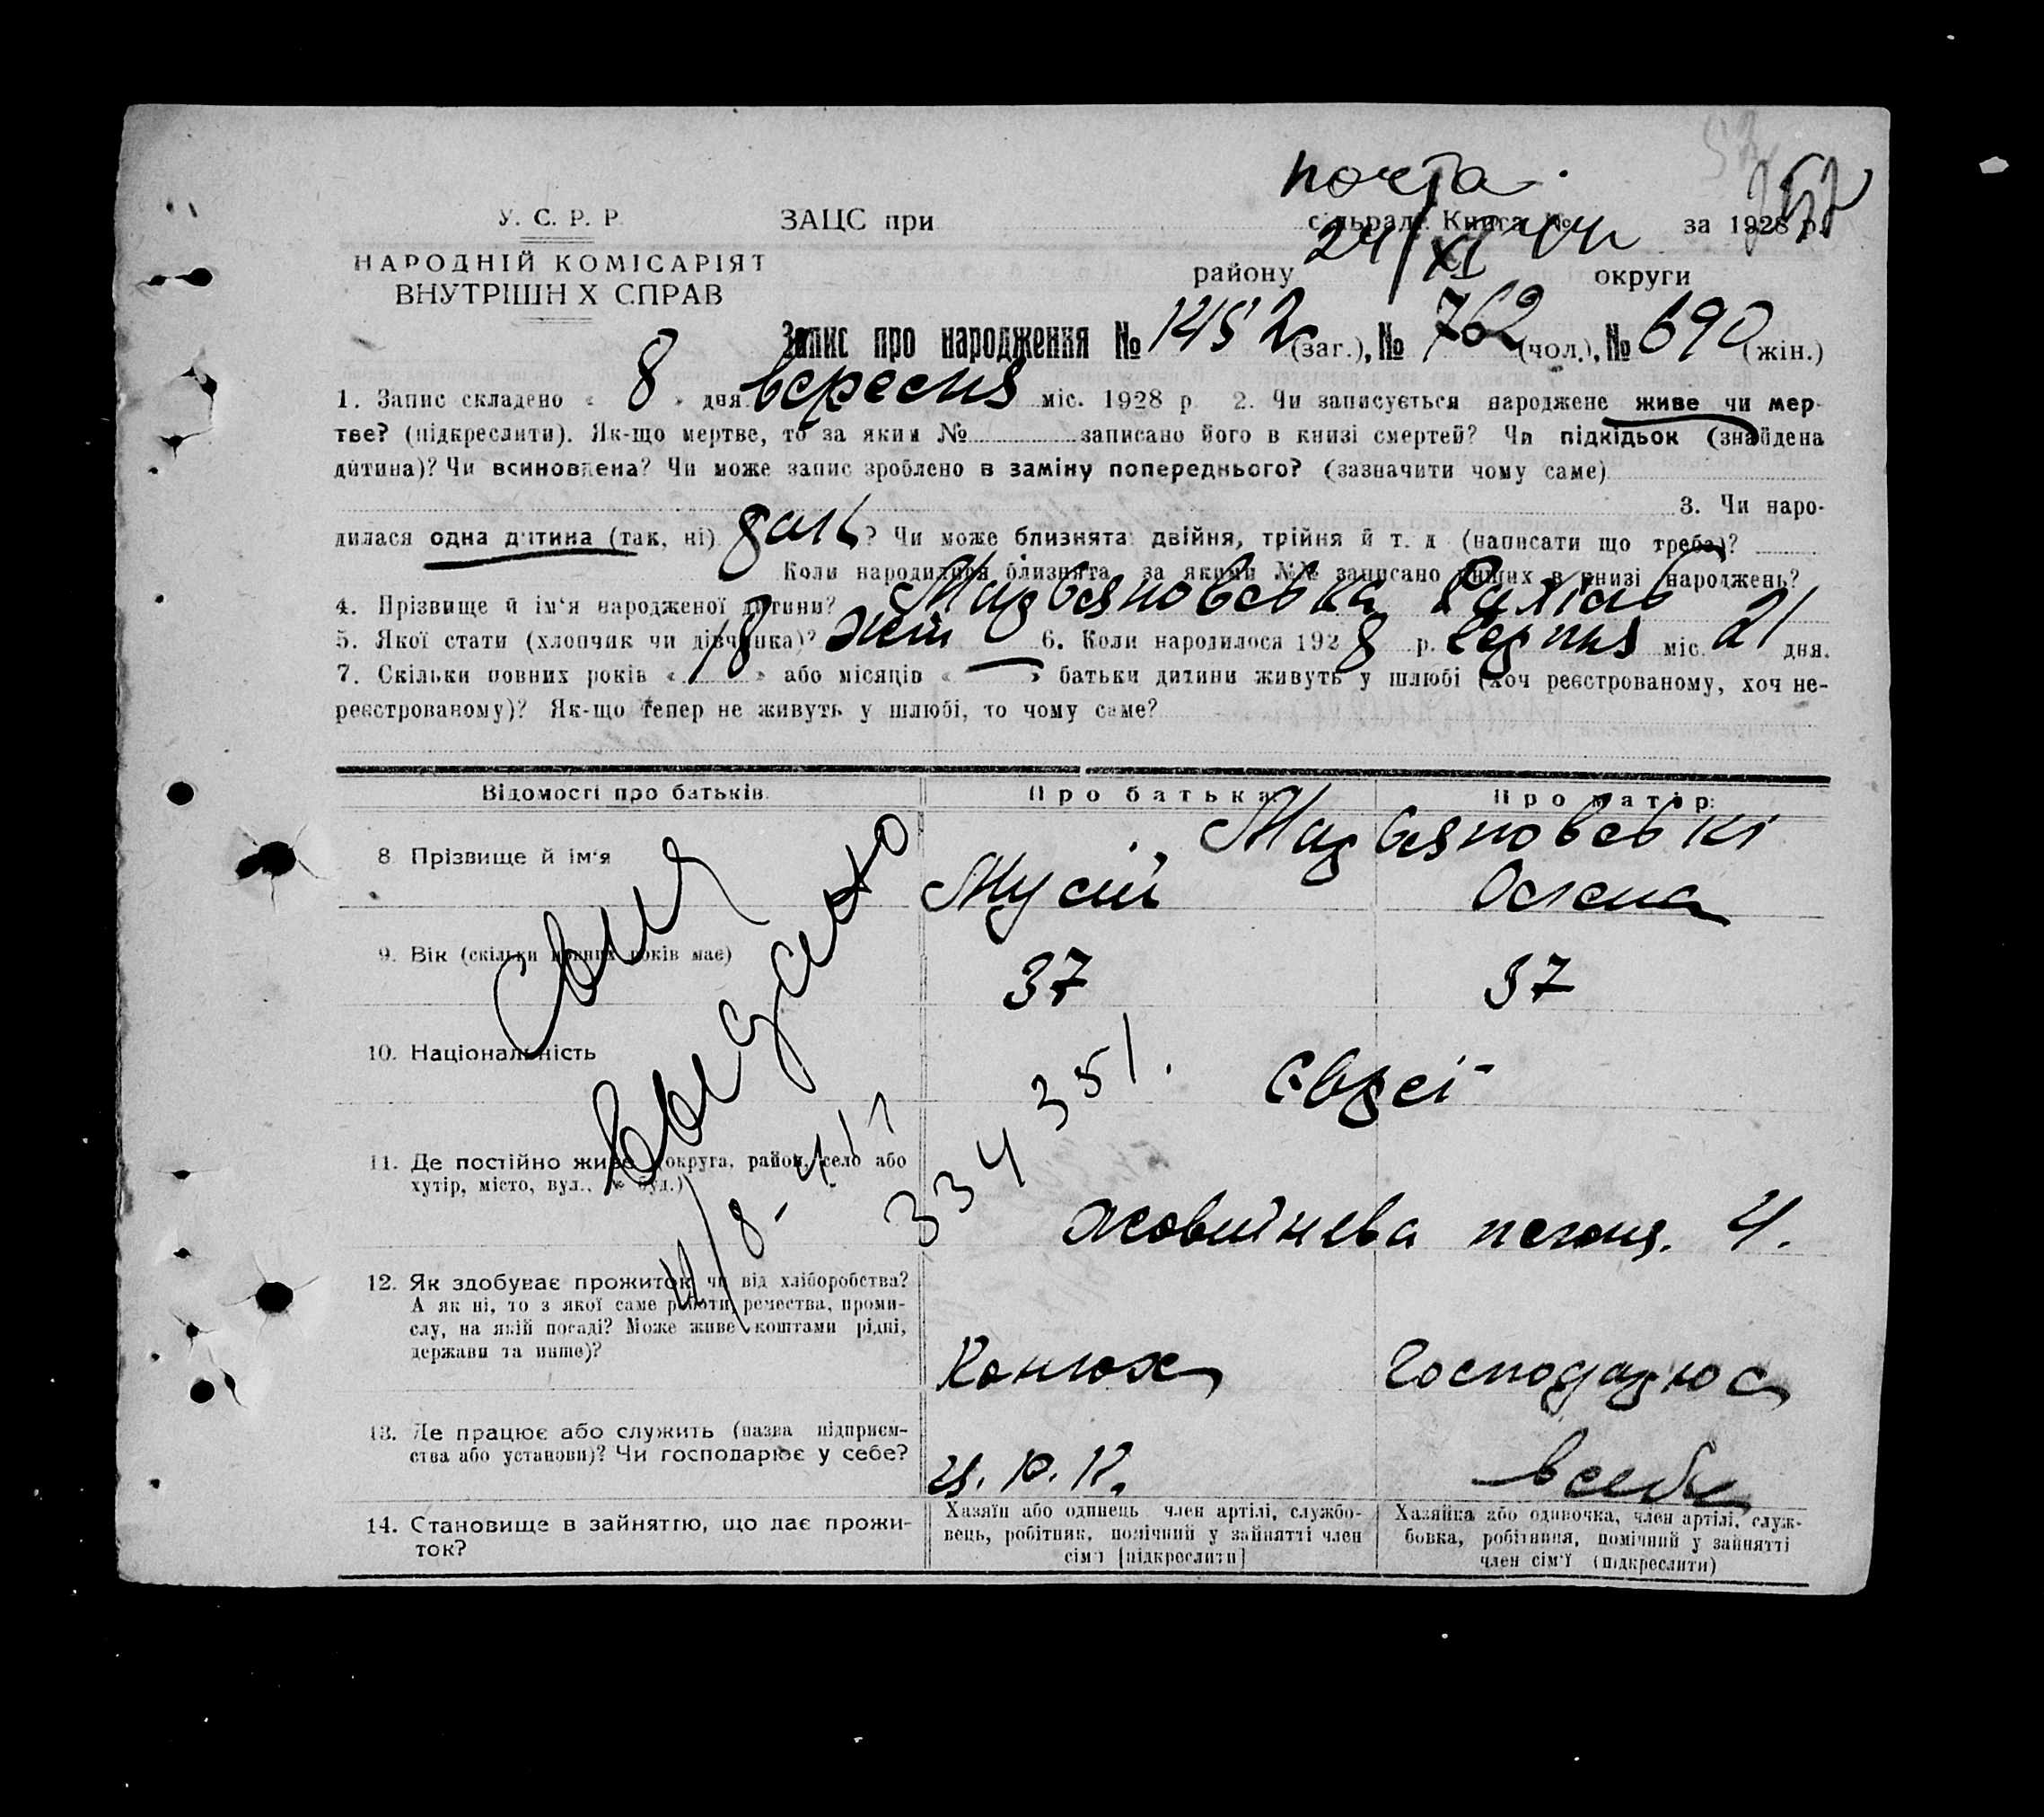 почта.
У. С. Р. Р. ЗАЦС при сільраді Книга № за 1928 р.
НАРОДНІЙ КОМІСАРІЯТ
ВНУТРІШН Х СПРАВ
району 24/XI 44 округи
Запис про народження № 1452 (заг.), № 762 (чол.), № 690 (жін.)
1. Запис складено « 8 » дня вересня міс. 1928 р 2. Чи записується народжене живе чи мер-
тве? (підкреслити). Як-що мертве, то за яким № записано його в книзі смертей? Чи підкідьок (знайдена
дитина)? Чи всиновлена? Чи може запис зроблено в заміну попереднього? (зазначити чому саме)
3. Чи наро-
дилася одна дитина (так, ні) ? Чи може близнята: двійня, трійня й т. д (написати що треба)?
Коли народилися близнята, за якими №№ записано инших в книзі народжень?
4. Прізвище й ім'я народженої дитини?
5. Якої стати (хлопчик чи дівчинка)? жін 6. Коли народилося 1928 р. серпня міс. 21 дня.
7. Скільки повних років « 18 » або місяців « — » батьки дитини живуть у шлюбі (хоч реєстрованому, хоч не-
реєстрованому)? Як-що тепер не живуть у шлюбі, то чому саме?
Відомості про батьків. Про батька: Про матір:
8. Прізвище й ім'я
Мусій Олена
9. Вік (скільки повних років має) 37 37
10. Національність євреї
334351.
11. Де постійно живе (округа, район, село або
хутір, місто, вул., № буд.)
Жовтнева 4.
12. Як здобуває прожиток чи від хліборобства?
А як ні, то з якої саме роботи, ремества, проми-
слу, на якій посаді? Може живе коштами рідні,
держави та инше)?
Конюх Господарює
13. Де працює або служить (назва підприєм-
ства або установи)? Чи господарює у себе?
в себе
14. Становище в зайняттю, що дає прожи-
ток?
Хазяїн або одинець член артілі, службо-
вець, робітник, помічний у зайнятті член
сім'ї [підкреслити]
Хазяйка або одиночка, член артілі, служ-
бовка, робітниця, помічний у зайнятті
член сім'ї (підкреслити)
выдано